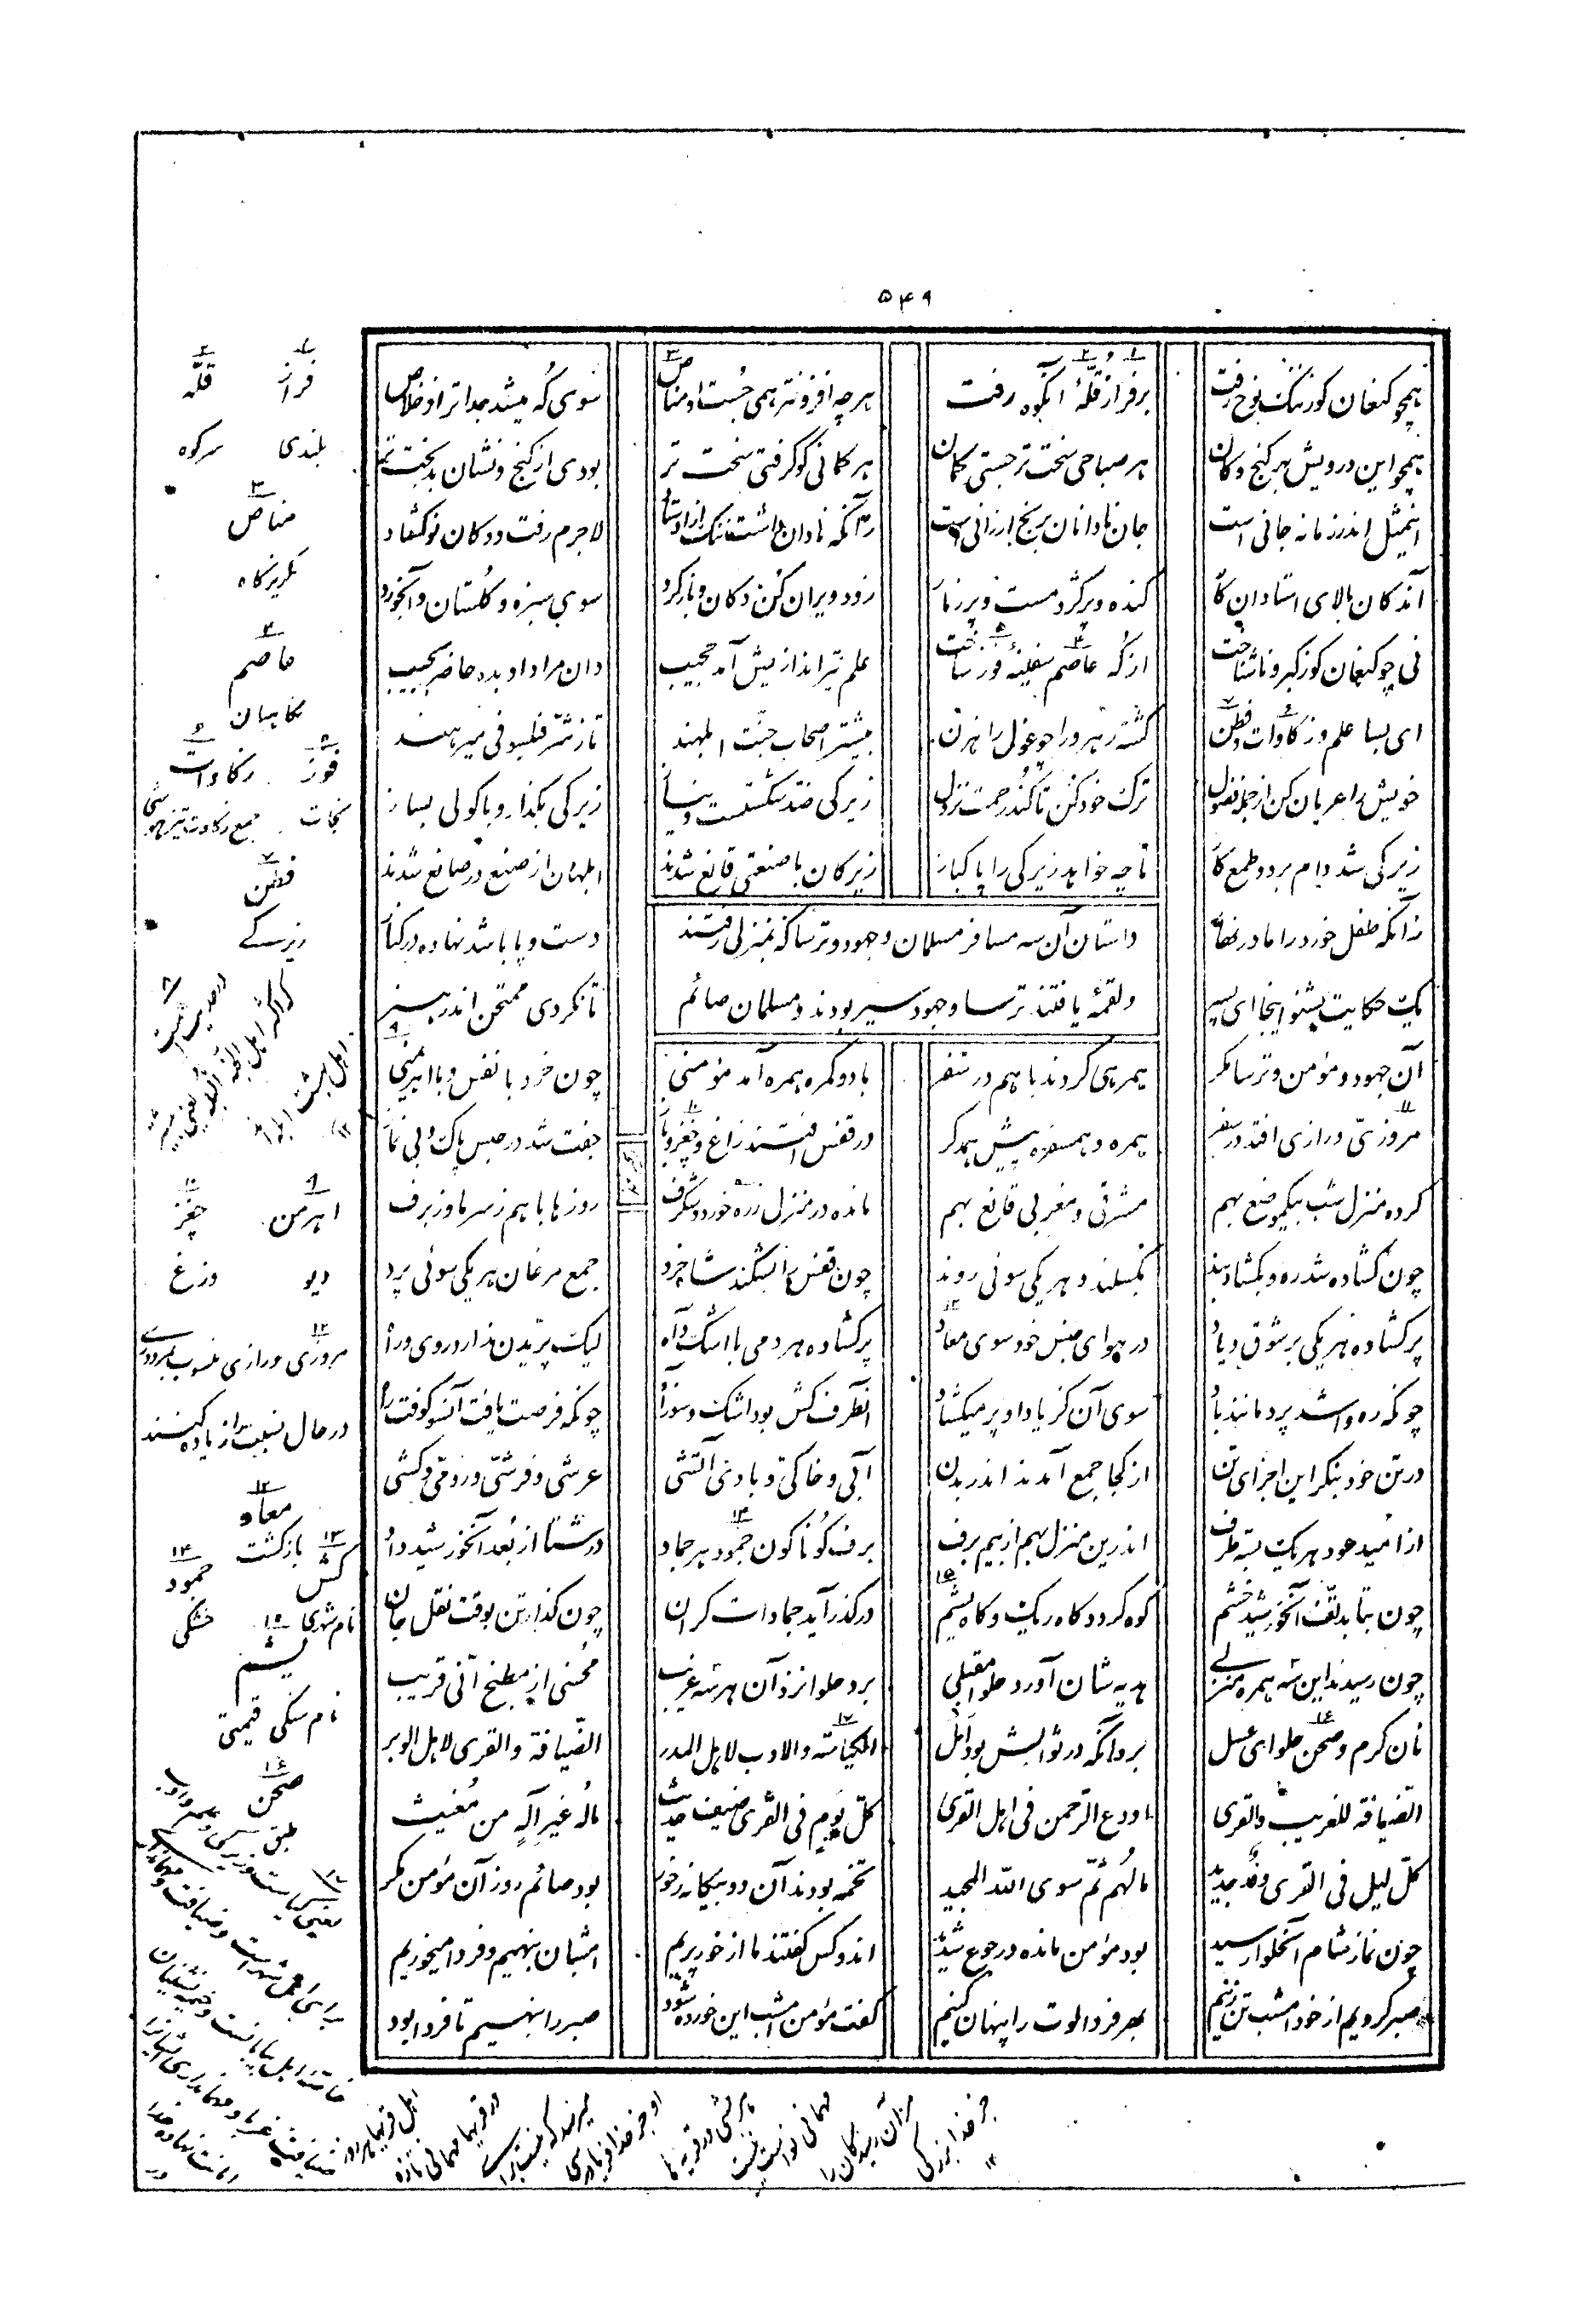 ۵۴۹
همچو کنعان کو ز ننگ نوح رفت بر فراز قلهٔ آن کوه رفت هر چه افزونتر همی جُست او مناص سوی کُه میشد جداتر از خلاص
همچو این درویش بهر گنج و کان هر صباحی سخت تر جستی کمان هر کمانی کو گرفتی سخت تر بودی از گنج و نشان بدبخت تر
این مثل اندر زمانه جانی است جان نادانان برنج ارزانی است زآنکه نادان داشت ننگ از اوستاد لاجرم رفت و دکان نو گشاد
آن دکان بالای استاد ای نگار گنده و پر کژدمست و پر ز مار زود ویران کن دکان و بازگرد سوی سبزه و گلستان و آبخورد
نی چو کنعان کو ز کبر و ناشناخت از که عاصم سفینهٔ فوز ساخت علم تیراندازیش آمد حجیب وان مراد او بده حاضر بجیب
ای بسا علم و ز کاوات و فطن گشته رهرو را چو غول راهزن بیشتر اصحاب جنت ابلهند تا ز شر فیلسوفی میرهند
خویش را عریان کن از جمله فضول ترک خود کن تا کند رحمت نزول زیرکی ضد شکستست و نیاز زیرکی بگذار و با گولی بساز
زیرکی شد دام برد و طمع و گاز تا چه خواهد زیرکی را پاکباز زیرکان با صنعتی قانع شدند ابلهان از صنع در صانع شدند
زآنکه طفل خورد را مادر نهار دست و پا باشد نهاده در کنار
داستان آن سه مسافر مسلمان و جهود و ترسا که بمنزلی رفتند
ولقمهٔ یافتند ترسا و جهود سیر بودند و مسلمان صائم
یک حکایت بشنو اینجا ای پسر تا نگردی ممتحن اندر هنر
آن جهود و مؤمن و ترسا مگر همرهی کردند باهم در سفر با دو گمره همره آمد مؤمنی چون خرد با نفس و با اهرمنی
مروزی و رازی افتد در سفر همره و همسفره پیش همدگر در قفس افتند زاغ و چغز و باز جفت شد در حبس پاک و بی نماز
کرده منزل شب بیک موضع بهم مشرقی و مغربی قانع بهم مانده در منزل ز ره خورد و شگرف روزها باهم ز سرما و ز برف
چون گشاده شد ره و بگشاد بند بگسلند و هر یکی سوئی روند چون قفس را بشکند شاه خرد جمع مرغان هر یکی سوئی پرد
پر گشاده هر یکی بر شوق و یاد در هوای جنس خود سوی معاد پر گشاده هر دمی با اشک و آه لیک پریدن ندارد روی و راه
چونکه ره وا شد پرد مانند باد سوی آن کز یاد او پر میگشاد آنطرف کش بود اشک و سوز و آه چونکه فرصت یافت آنسو کوفت راه
در تن خود بنگر این اجزای تن از کجا جمع آمدند اندر بدن آبی و خاکی و بادی آتشی عرشی و فرشی و رومی و کشی
از امید عود هر یک بسته طرف اندرین منزل بهم از بیم برف برف گوناگون جمود هر جماد در شتا از بُعد آن خورشید داد
چون بتابد تف آن خورشید خشم کوه گردد گاه ریگ و گاه یشم در گداز آید جمادات گران چون گداز تن بوقت نقل جان
چون رسیدند این سه همره منزلی هدیه شان آورد حلوا مقبلی برد حلوا نزد آن هر سه غریب محسنی از مطبخ انّی قریب
نان گرم و صحن حلوای عسل برد آنکه در ثوابش بود امل الکیاسة والادب لاهل المدر الضیافة والقری لاهل الوبر
الضیافة للغریب والقری اودع الرحمن فی اهل القری کل یوم فی القری ضیف حدیث ماله غیر الٰه من مغیث
کل لیل فی القری وفد جدید مالهم ثم سوی الله المجید تخمه بودند آن دو بیگانه ز خور بود صائم روز آن مؤمن مگر
چون نماز شام آن حلوا رسید بود مؤمن مانده در جوع شدید آن دو کس گفتند ما از خور پریم امشبان بنهیم و فردا میخوریم
صبر گیریم از خور امشب تن زنیم بهر فردا لوت را پنهان کنیم گفت مؤمن امشب این خورده شود صبر را بنهیم تا فردا بود
۱ فراز بلندی
۲ قلّه سرکوه
۳ مناص گریزگاه
۴ عاصم نگاهبان
۵ فوز نجات
۶ زکاوات جمع زکاوت تیزهوشی
۷ فطن زیرکی
۹ اهرمن دیو
۱۰ چغز وزغ
مروزی و رازی منسوب بمرو و ری
در حال نسبت زاء زیاده کنند
۱۲ معاد بازگشت
۱۳ کش نام شهری
۱۴ جمود خشکی
۱۵ یشم نام سنگی قیمتی
۱۶ صحن طبق